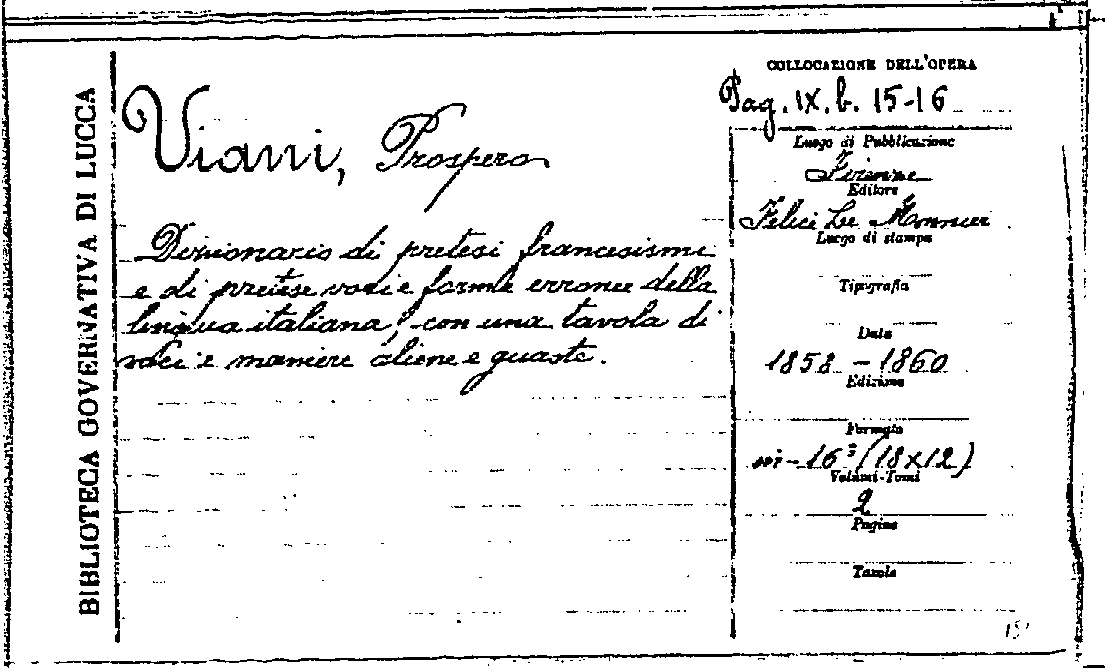 BIBLIOTECA GOVERNATIVA DI LUCCA
Viani, Prospero
Dizionario di pretesi francesismi
e di pretese voci e forme erronee della
lingua italiana, con una tavola di
voci e maniere aliene e guaste.
COLLOCAZIONE DELL'OPERA
Pag. IX. b. 15-16
Luogo di Pubblicazione
Firenze
Editore
Felici Le Monnier
Luogo di stampa
Tipografia
Data
1858 - 1860
Edizione
Formato
in-16° (18x12)
Volumi-Tomi
2
Pagine
Tavole